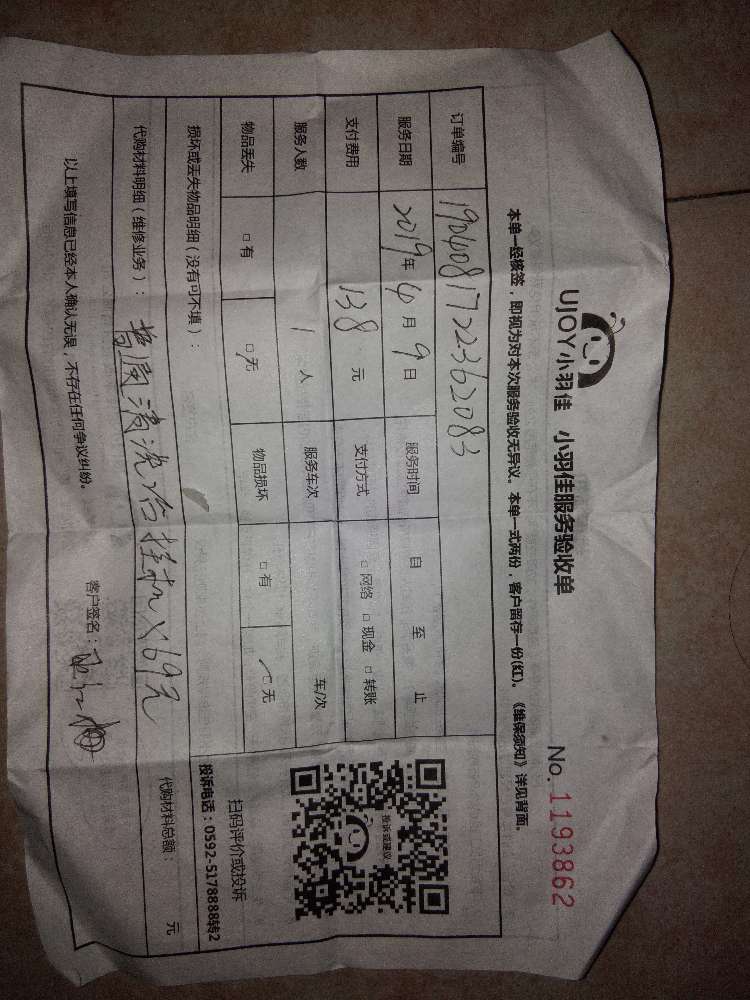 UJOY小羽佳 小羽佳服务验收单
No. 1193862
本单一经核签，即视为对本次服务验收无异议。本单一式两份，客户留存一份(红)。《维保须知》详见背面。
订单编号 1904081722362083
服务日期 2019年 4月 9日 服务时间 自 至 止
支付费用 138 元 支付方式 □网络 □现金 □转账
服务人数 1 人 服务车次 车/次
物品丢失 □有 □无 物品损坏 □有 □无
损坏或丢失物品明细（没有可不填）：
代购材料明细（维修业务）：普通清洗 挂机×69元
代购材料总额： 元
以上填写信息已经本人确认无误，不存在任何争议纠纷。
客户签名：
投诉或建议
扫码评价或投诉
投诉电话：0592-5178888转2